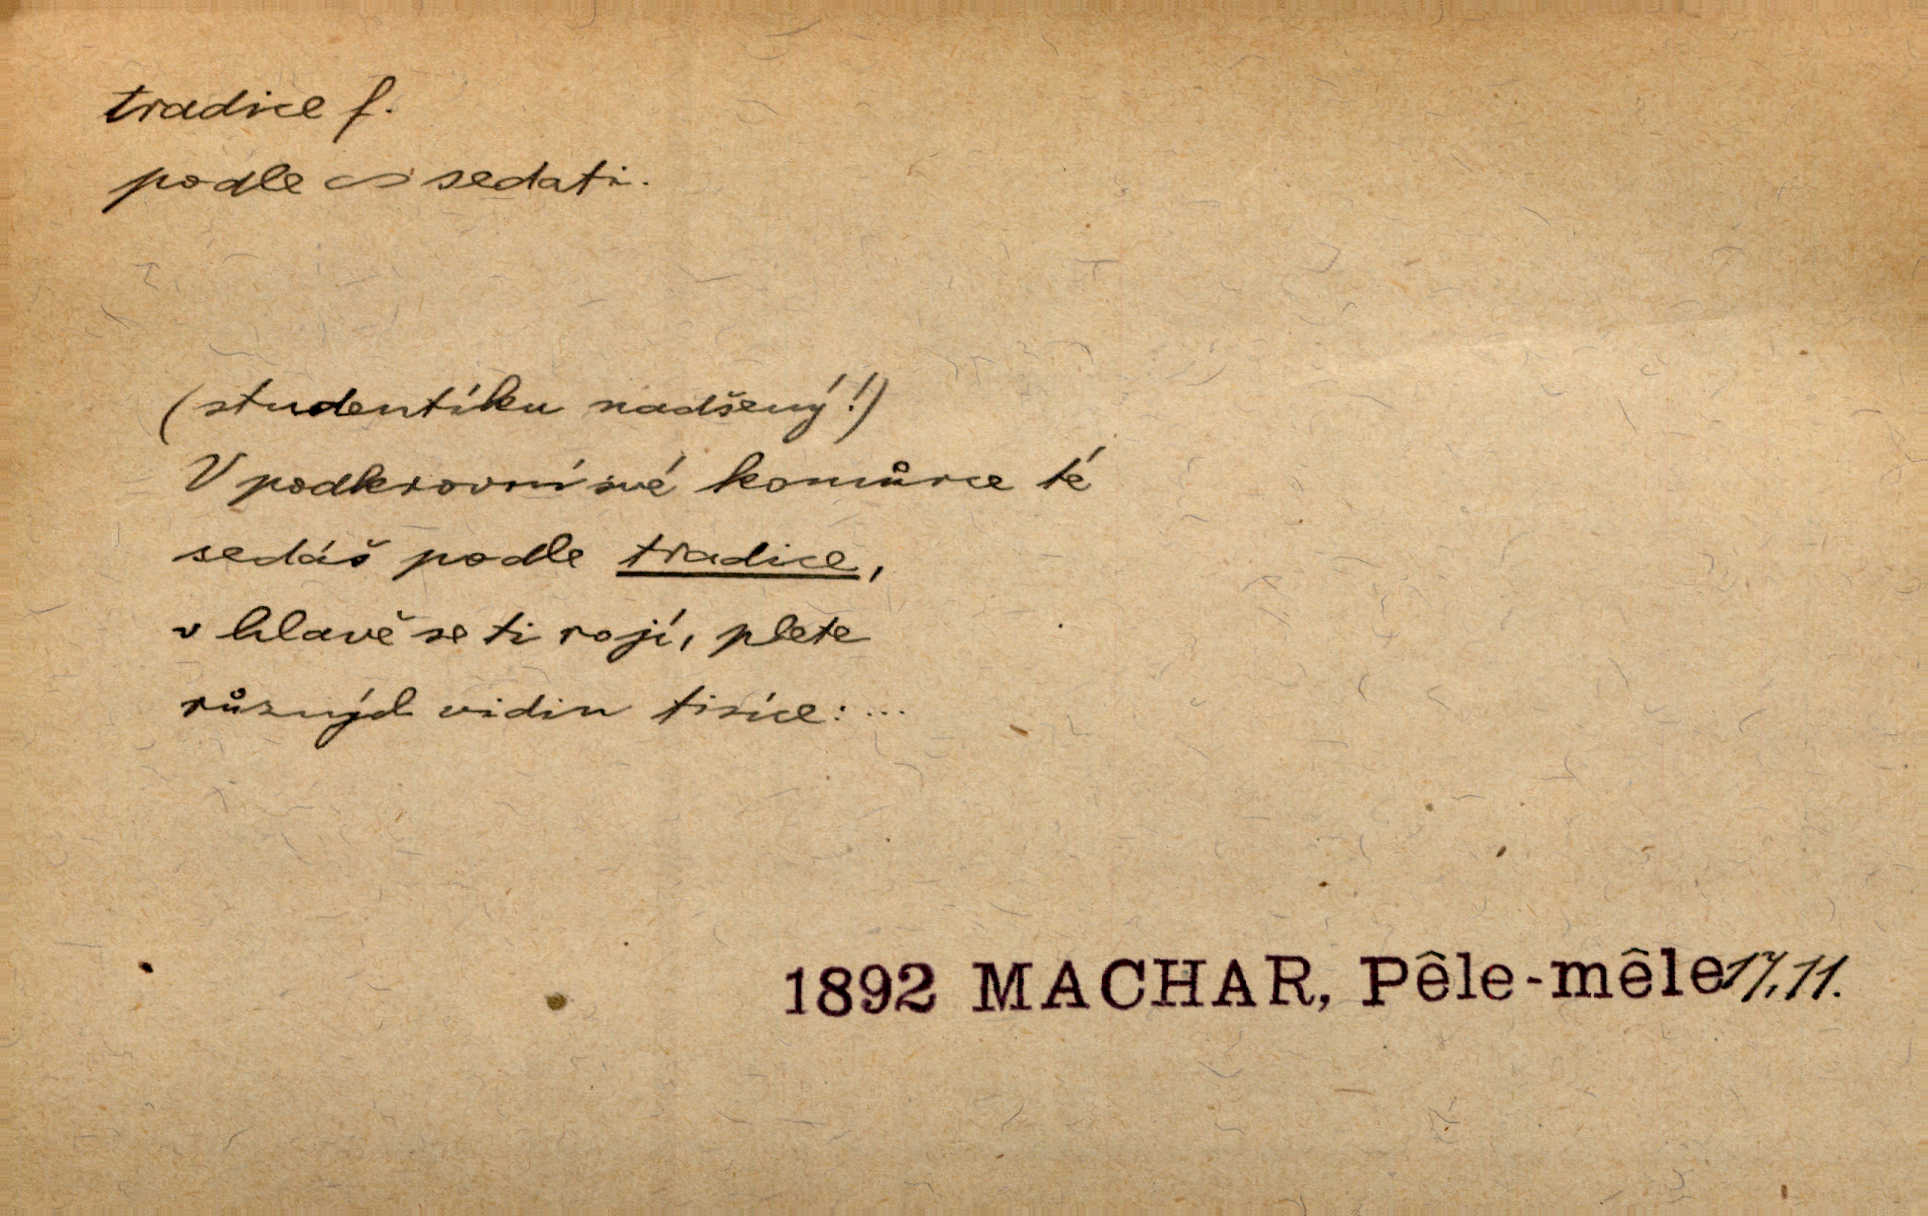 tradice f.
podle ∽ sedati.
(studentíku nadšený!)
V podkrovní své komůrce té
sedáš podle tradice,
v hlavě se ti rojí, plete
různých vidin tisíce: ...
1892 MACHAR, Pêle-mêle 17,11.